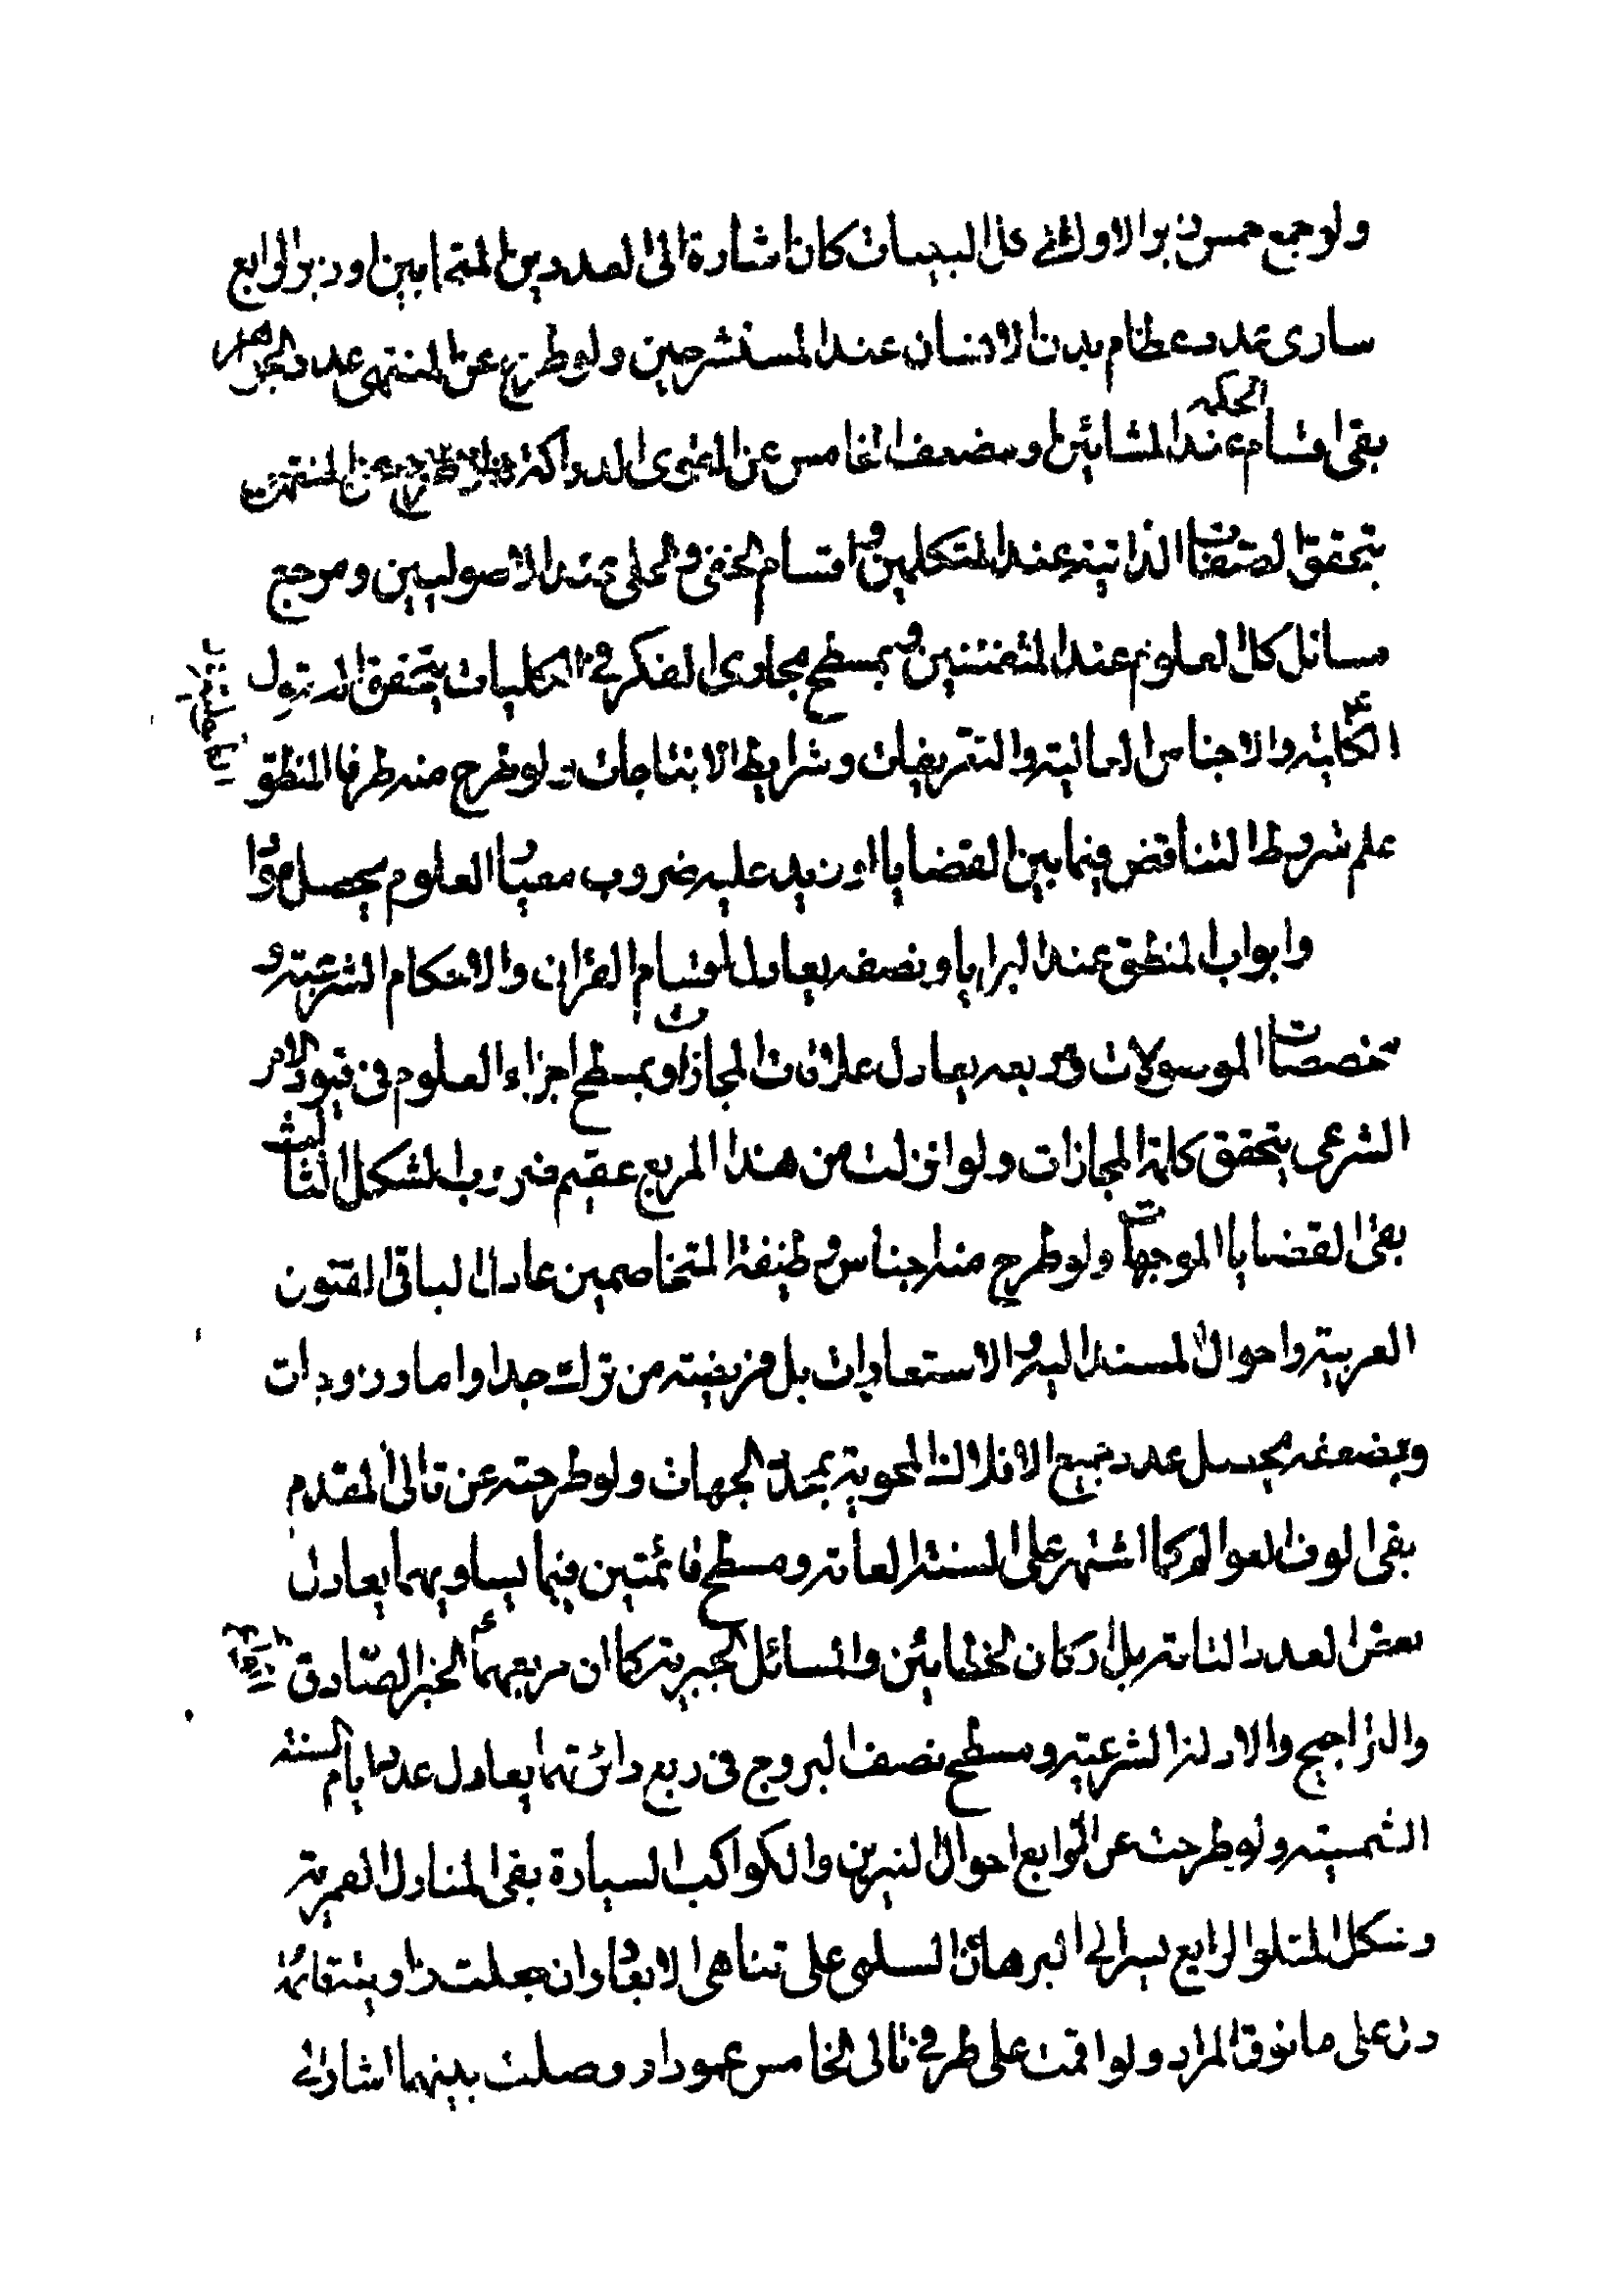 ولو جمع خمس زبر الاول الى البينات كان اشارة الى العددين المتحابين اوزبر الرابع
ساوى عدد عظام بدن الانسان عند المستشرحين ولو طرح عن المنتهى عدد الجواهر
بقى اقسام الحكمة عند المشائين ومضعف الخامس عن القوى الدراكة عن المنتهى
يتحقق الصفات الذاتية عند المتكلمين واقسام الخفى والجلى عند الاصوليين ومرجع
مسائل كل العلوم عند المتفننين وبمسطح مجارى الفكر فى الكليات يتحقق
الكلية والاجناس العالية والتعريفات وشرايط الانتاجات ولو طرح منه طرفا المنطق
علم شروط التناقض فيما بين القضايا اوزيد عليه ضروب معيار العلوم يحصل مواد
وابواب المنطق عند البرايا ونصفه يعادل اقسام القران والاحكام الشرعية و
مخصصات الموسولات ومربعه يعادل علاقات المجازات وبمسطح اجزاء العلوم فى قيود الامر
الشرعى يتحقق كلية المجازات ولو انزلت من هذا المربع عقيم ضروب الشكل الثالث
بقى القضايا الموجهات ولو طرح منه اجناس وظيفة المتخاصمين عادل الباقى الفنون
العربية واحوال المسند اليه والاستعارات بل فريضة من ترك جدا واما وزوجات
وبضعفه يحصل عدد جميع الافلاك المحوية بمحدد الجهات ولو طرحته عن تالى المقدم
بقى الوف العوالم كما اشتهر على السنة العامة ومسطح قائمتين فيما يساويهما يعادل
بعض العدد التامة بل اركان الخطايين والمسائل الجبرية كما ان مربعهما الخبر الصادق
والتراجيح والادلة الشرعية ومسطح نصف البروج فى ربع دائرتهما يعادل عدد ايام السنة
الشمسية ولو طرحت عن الرابع احوال النيرين والكواكب السيارة بقى المنازل القمرية
وشكل المتلو الرابع يشير الى البرهان السلمى على تناهى الابعاد ان جعلت زاويته قائمة
دل على ما فوق المراد ولو اقمت على طرفى تالى الخامس عمودا ووصلت بينهما اشار الى